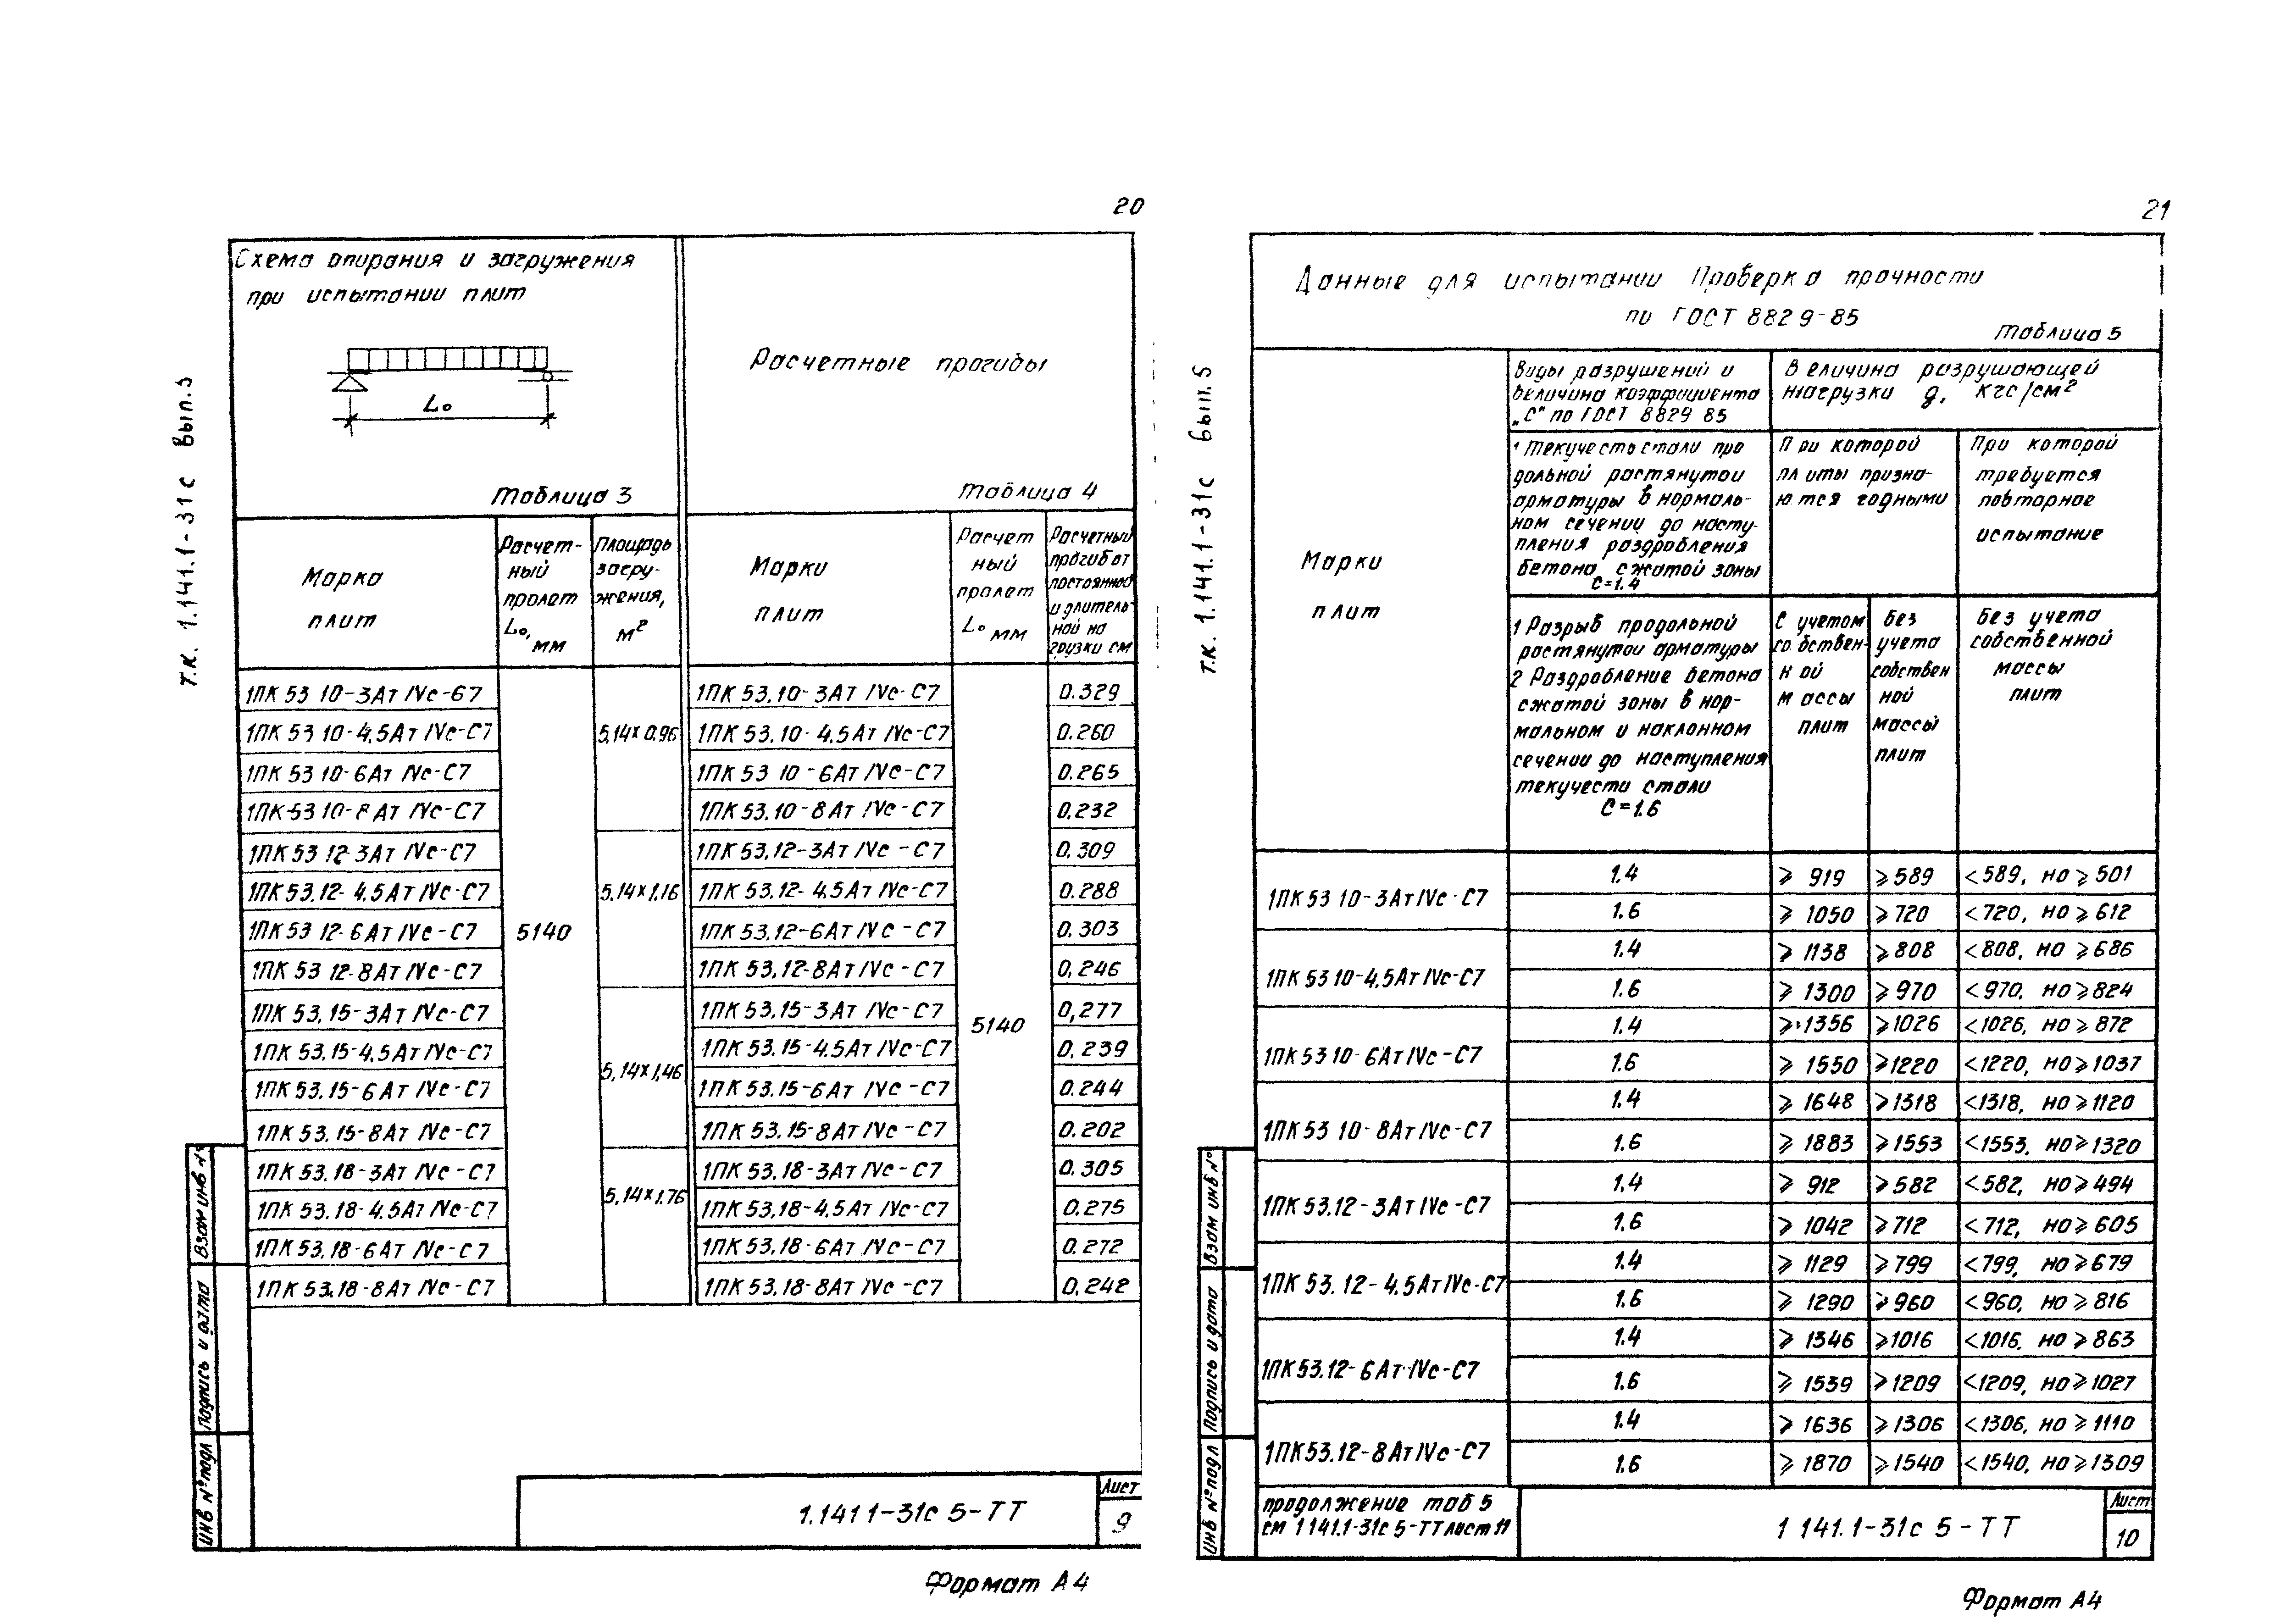 20
Схема опирания и загружения
при испытании плит
Lо
Таблица 3
Расчетные прогибы
Таблица 4
Марка
плит
Расчет-
ный
пролет
Lо,
мм
Площадь
загру-
жения,
м²
Марки
плит
Расчет
ный
пролет
Lо мм
Расчетный
прогиб от
постоянной
и длитель-
ной на
грузки см
1ПК 53 10-3Ат IVс-67
1ПК 53 10-4,5Ат IVс-С7
1ПК 53 10-6Ат IVс-С7
1ПК-53 10-8Ат IVс-С7
1ПК 53 12-3Ат IVс-С7
1ПК 53.12-4.5Ат IVс-С7
1ПК 53 12-6Ат IVс-С7
1ПК 53 12-8Ат IVс-С7
1ПК 53.15-3Ат IVс-С7
1ПК 53.15-4,5Ат IVс-С7
1ПК 53.15-6Ат IVс-С7
1ПК 53.15-8Ат IVс-С7
1ПК 53.18-3Ат IVс-С7
1ПК 53.18-4,5Ат IVс-С7
1ПК 53.18-6Ат IVс-С7
1ПК 53.18-8Ат IVс-С7
5140
5,14×0.96
5,14×1,16
5,14×1,46
5,14×1.76
1ПК 53.10-3Ат IVс-С7
1ПК 53.10-4.5Ат IVс-С7
1ПК 53 10-6Ат IVс-С7
1ПК 53.10-8Ат IVс-С7
1ПК 53.12-3Ат IVс-С7
1ПК 53.12-4.5Ат IVс-С7
1ПК 53.12-6Ат IVс-С7
1ПК 53.12-8Ат IVс-С7
1ПК 53.15-3Ат IVс-С7
1ПК 53.15-4.5Ат IVс-С7
1ПК 53.15-6Ат IVс-С7
1ПК 53.15-8Ат IVс-С7
1ПК 53.18-3Ат IVс-С7
1ПК 53.18-4,5Ат IVс-С7
1ПК 53.18-6Ат IVс-С7
1ПК 53.18-8Ат IVс-С7
5140
0.329
0.260
0.265
0.232
0.309
0.288
0.303
0.246
0,277
0.239
0.244
0.202
0.305
0.275
0.272
0.242
1.141 1-31с 5-ТТ
Лист
9
Формат А4
Т.К. 1.141.1-31с Вып.5
Взам инв №
Подпись и дата
Инв № подл
21
Данные для испытании Проверка прочности
по ГОСТ 8829-85
Таблица 5
Марки
плит
Виды разрушений и
величина коэффициента
„С" по ГОСТ 8829 85
Величина разрушающей
нагрузки g, кгс/см²
1 Текучесть стали про
дольной растянутой
арматуры в нормаль-
ном сечении до насту-
пления раздробления
бетона сжатой зоны
С=1.4
При которой
плиты призна-
ются годными
При которой
требуется
повторное
испытание
1 Разрыв продольной
растянутой арматуры
2 Раздробление бетона
сжатой зоны в нор-
мальном и наклонном
сечении до наступления
текучести стали
С=1.6
С учетом
собствен-
ной
массы
плит
без
учета
собствен
ной
массы
плит
без учета
собственной
массы
плит
1ПК 53 10-3Ат IVс-С7
1.4 ⩾ 919 ⩾589 <589, но ⩾ 501
1.6 ⩾ 1050 ⩾720 <720, но ⩾ 612
1ПК 53 10-4,5Ат IVс-С7
1.4 ⩾ 1138 ⩾808 <808, но ⩾686
1.6 ⩾ 1300 ⩾970 <970, но ⩾824
1ПК 53 10-6Ат IVс-С7
1.4 ⩾ 1356 ⩾1026 <1026, но ⩾ 872
1.6 ⩾ 1550 ⩾1220 <1220, но ⩾1037
1ПК 53 10-8Ат IVс-С7
1.4 ⩾ 1648 ⩾1318 <1318, но ⩾1120
1.6 ⩾ 1883 ⩾1553 <1553, но ⩾1320
1ПК 53.12-3Ат IVс-С7
1.4 ⩾ 912 ⩾582 <582, но ⩾494
1.6 ⩾ 1042 ⩾712 <712, но ⩾ 605
1ПК 53.12-4,5Ат IVс-С7
1.4 ⩾ 1129 ⩾799 <799, но ⩾679
1.6 ⩾ 1290 ⩾960 <960, но ⩾ 816
1ПК 53.12-6Ат IVс-С7
1.4 ⩾ 1346 ⩾1016 <1016, но ⩾ 863
1.6 ⩾ 1539 ⩾1209 <1209, но ⩾ 1027
1ПК 53.12-8Ат IVс-С7
1.4 ⩾ 1636 ⩾1306 <1306, но ⩾ 1110
1.6 ⩾ 1870 ⩾1540 <1540, но ⩾1309
продолжение таб 5
см 1 141.1-31с 5-ТТ лист 11
1 141.1-31с 5-ТТ
Лист
10
Формат А4
Т.К. 1.141.1-31с вып.5
Взам инв №
Подпись и дата
Инв № подл